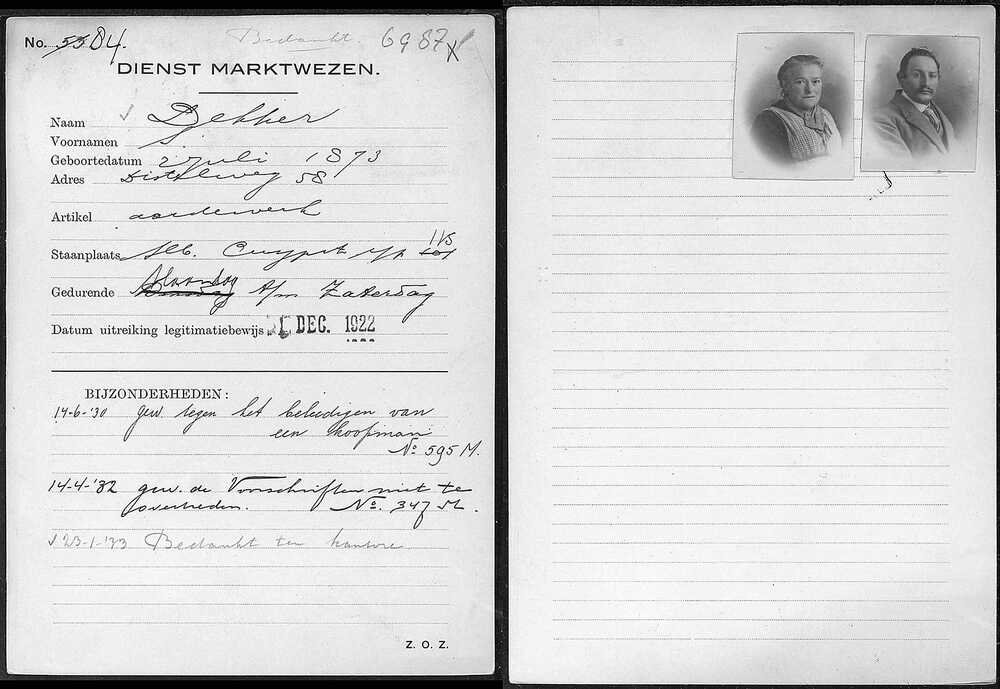 No. 5504. Bedankt. 6987
DIENST MARKTWEZEN.
Naam Dekker
Voornamen S.
Geboortedatum 2 Juli 1873
Adres Distelweg 58
Artikel aardewerk
115
Staanplaats Alb. Cuypst
Maandag
Gedurende t/m Zaterdag
Datum uitreiking legitimatiebewijs DEC. 1922
BIJZONDERHEDEN:
14-6-'30 gew. tegen het beleedigen van
een koopman
No 595 M.
14-4-'32 gew. de Voorschriften niet te
overtreden. No. 347 M.
23-1-'33 Bedankt ten kantore
Z. O. Z.